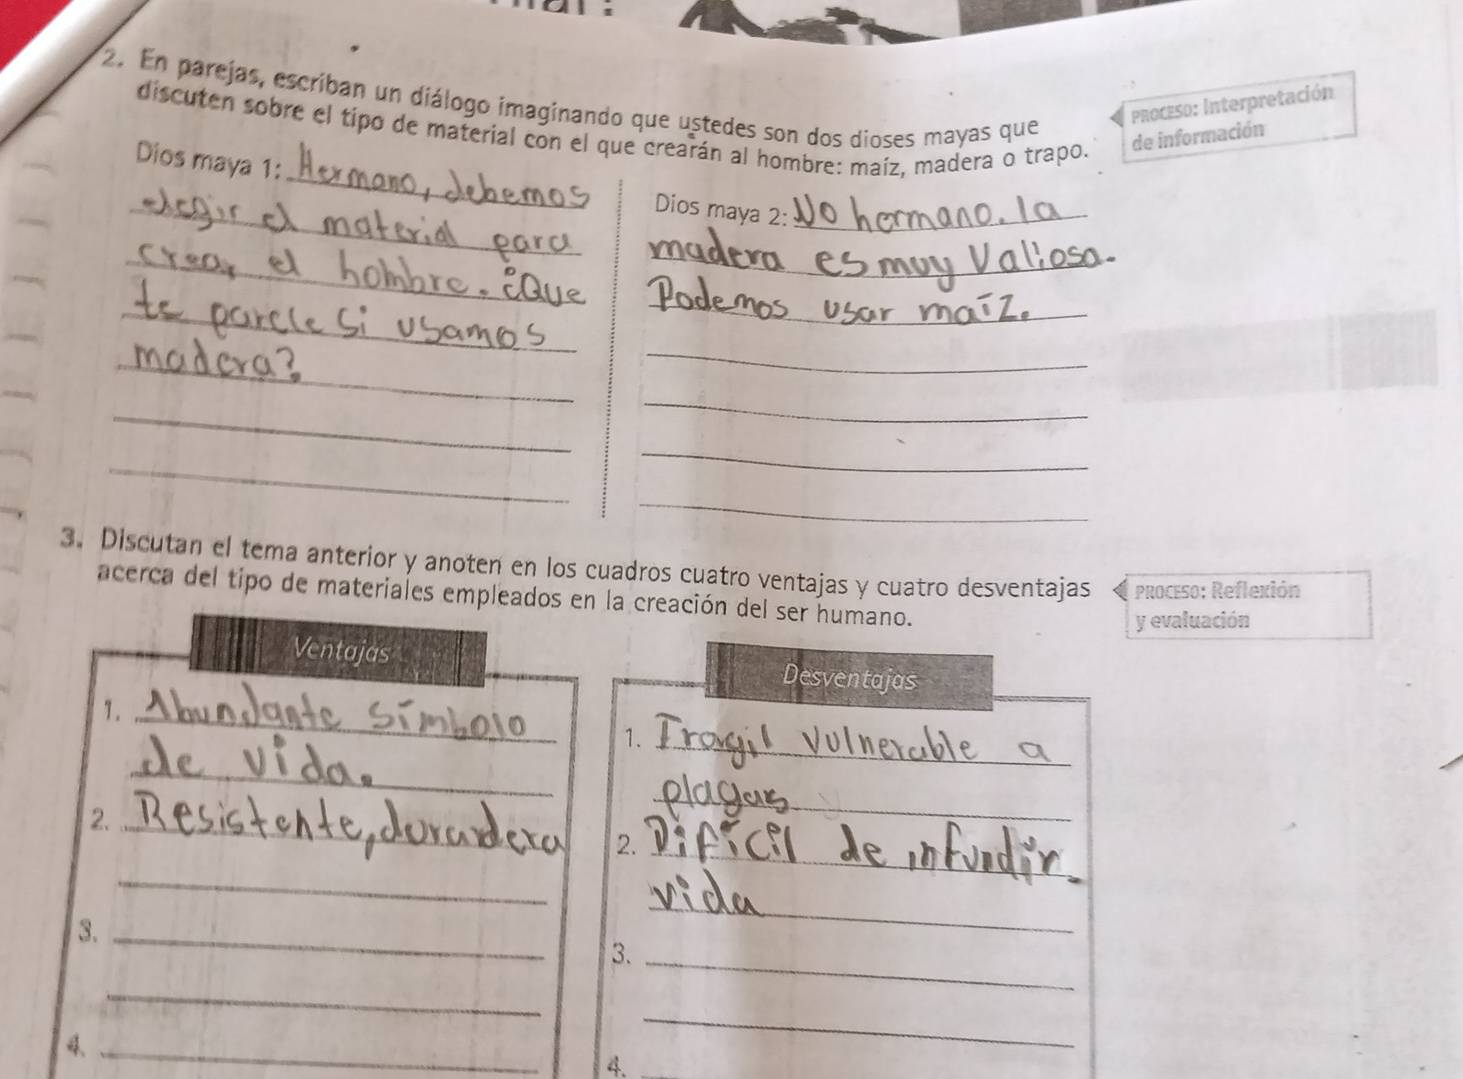 2. En parejas, escriban un diálogo imaginando que ustedes son dos dioses mayas que
discuten sobre el tipo de material con el que crearán al hombre: maíz, madera o trapo.
PROCESO: Interpretación
de información
Dios maya 1: Hermano, debemos
elegir el material para
crear el hombre. ¿Que
te parece si usamos
madera?
Dios maya 2: No hermano. la
madera es muy Valiosa.
Podemos usar maíz.
3. Discutan el tema anterior y anoten en los cuadros cuatro ventajas y cuatro desventajas
acerca del tipo de materiales empleados en la creación del ser humano.
PROCESO: Reflexión
y evaluación
Ventajas
1. Abundante símbolo
de vida.
2. Resistente, duradera
3.
4.
Desventajas
1. Fragil vulnerable a
plagas
2. Difícil de infundir
vida
3.
4.